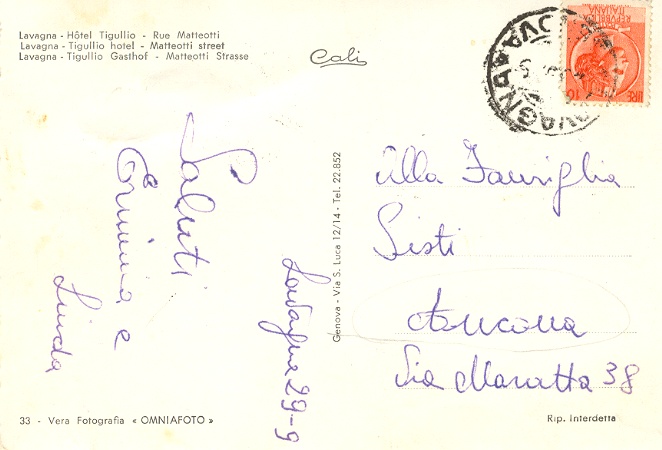 Lavagna - Hôtel Tigullio - Rue Matteotti
Lavagna - Tigullio hotel - Matteotti street
Lavagna - Tigullio Gasthof - Matteotti Strasse
Cali
REPUBBLICA
ITALIANA
LIRE 10
LAVAGNA
Saluti
Erminia e
Linda
Lavagna 29-9
Genova - Via S. Luca 12/14 - Tel. 22.852
Alla Famiglia
Sisti
Ancona
Via Maratta 38
33 - Vera Fotografia « OMNIAFOTO »
Rip. Interdetta